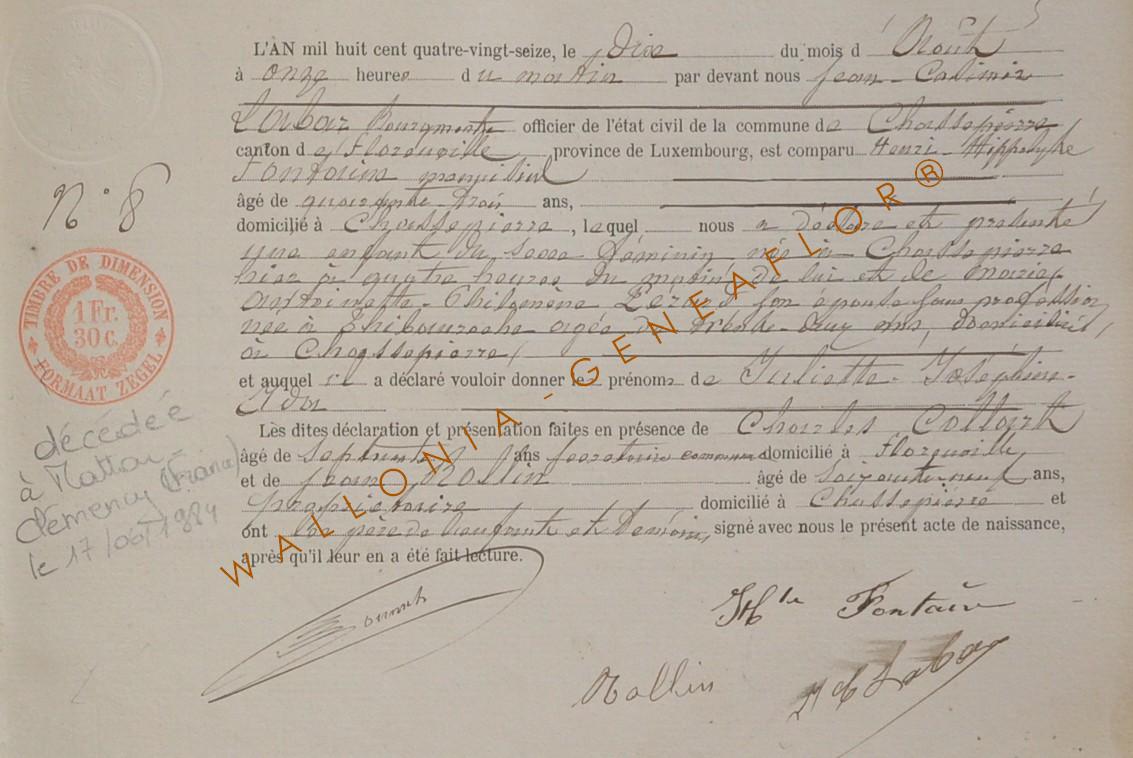 L'AN mil huit cent quatre-vingt-seize, le dix du mois d'Août
à onze heures du matin par devant nous Jean-Casimir
Labar Bourgmestre officier de l'état civil de la commune de Chassepierre
canton de Florenville province de Luxembourg, est comparu Henri-Hippolyte
Fontaine
âgé de quarante-trois ans,
domicilié à Chassepierre, lequel nous a déclaré et présenté
une enfant du sexe féminin née à Chassepierre
hier à quatre heures du matin de lui et de Maria
Antoinette-Philomène son épouse sans profession
née à âgée de trente-deux ans, domiciliés
à Chassepierre,
et auquel il a déclaré vouloir donner les prénoms de Juliette-Joséphine-
Ida
Les dites déclaration et présentation faites en présence de Charles Collard
âgé de ans secrétaire communal domicilié à Florenville
et de Jean Rollin âgé de soixante-neuf ans,
propriétaire domicilié à Chassepierre et
ont les père de l'enfant et témoins signé avec nous le présent acte de naissance,
après qu'il leur en a été fait lecture.
N° 8
TIMBRE DE DIMENSION
1 Fr.
30 c.
FORMAAT ZEGEL
décédée
à Matton
Clémency (France)
le 17/06/1984
Hte Fontaine
Rollin
JC Labar
WALLONIA-GENEAFLOR®